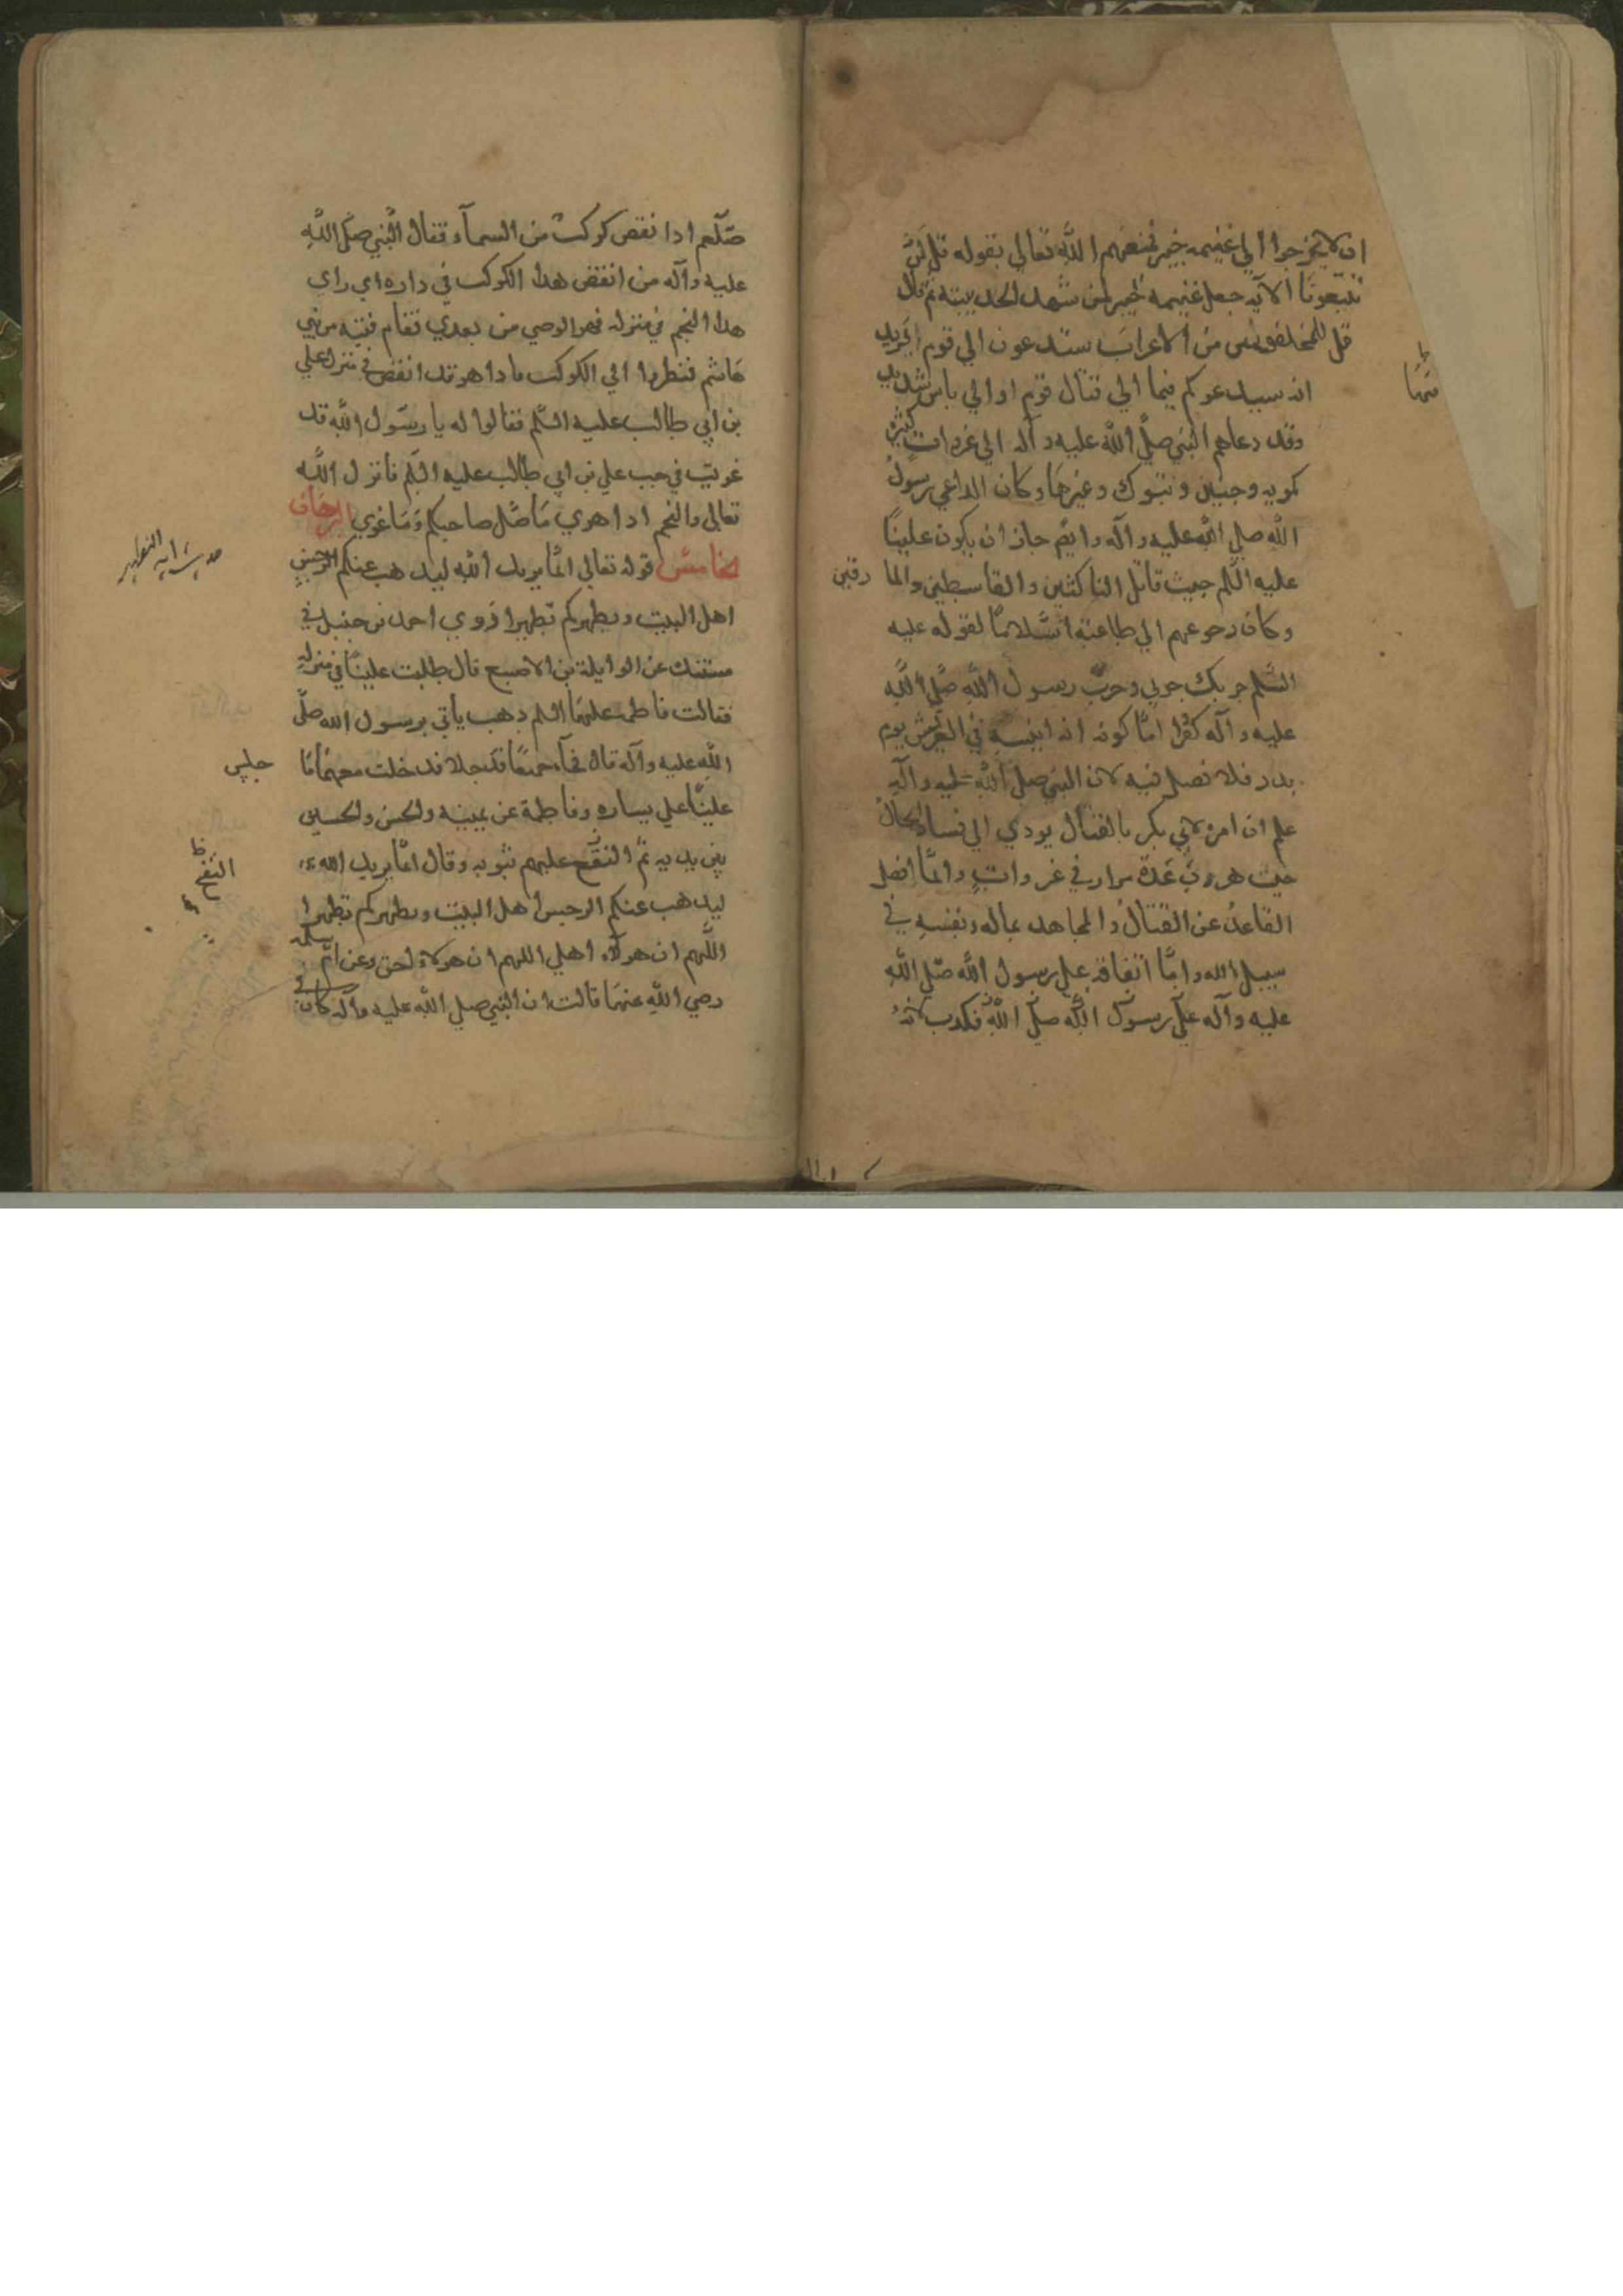 ان لا يخرجوا الى غنيمه خيبر فمنعهم الله تعالى بقوله قل لن
تتبعونا الآيه جعل غنيمه خيبر لمن شهد الحديبيته ثم قال
قل للمخلفين من الاعراب ستدعون الي قوم يريد
انه سيدعوكم فيما الي قتال قوم اولي باس شديد
وقد دعاهم النبي صلى الله عليه وآله الي غزوات كثيره
كموته وحنين وتبوك وغيرها وكان الداعي رسول
الله صلى الله عليه وآله وايضم جاز ان يكون علينا
عليه السلم حيث قاتل الناكثين والقاسطين والما رقين
وكان رجوعهم الي طاعته اسلاما لقوله عليه
السلم حربك حربي وحرب رسول الله صلى الله
عليه وآله كفرا امّا كونه انه انيسه في العريش يوم
بدر فلا فضل فيه لان النبي صلى الله عليه وآله
علم ان امره لابي بكر بالقتال يودي الي فساد الحال
حيث هرب عدة مرار في غزوات وانما افضل
القاعد عن القتال والمجاهد بماله ونفسه في
سبيل الله وامّا انفاقه على رسول الله صلى الله
عليه وآله على رسول الله صلى الله فكذب لانه
صلّعم اذا نقض كوكب من السمآء فقال النبي صلى الله
عليه وآله من انقض هذا الكوكب في داره اي راي
هذا النجم في منزله فهو الوصي من بعدي فقام فتيه من بني
هاشم فنظروا الي الكوكب ماذا هو قد انقض في منزل علي
بن ابي طالب عليه السّلم فقالوا له يا رسول الله قد
غويت في حب علي بن ابي طالب عليه السلم فانزل الله
تعالى والنجم اذا هوي ما ضل صاحبكم وما غوي البرهان
الخامس قوله تعالي انّما يريد الله ليذهب عنكم الرجس
حديث ايه التطهير
اهل البيت ويطهركم تطهيرا روي احمد بن حنبل في
مسنده عن الوايلة بن الاصبع قال طلبت علينا في منزله
فقالت فاطمه عليها السلم ذهب يأتي برسول الله صلّى
الله عليه وآله قال فجآء جميعا قد خلا فدخلت معهما فا جلس
علينّا علي يساره وفاطمة عن يمينه والحسن والحسين
بين يديه ثم التقح عليهم بثوبه وقال انّما يريد الله
التفح ظ
ليذهب عنكم الرجس اهل البيت ويطهركم تطهيرا
اللهم ان هولآء اهلي اللهم ان هولاء احق وعن ام سلمه
رضي الله عنها قالت ان النبي صلي الله عليه وآله كان في